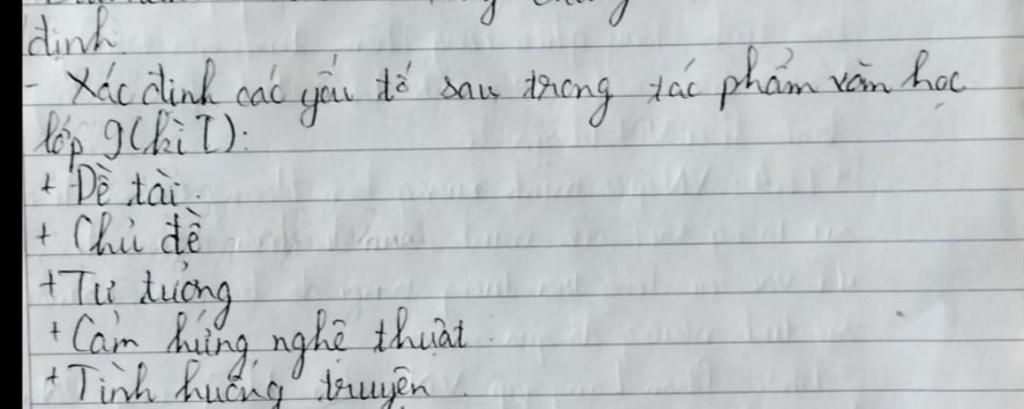 định
- Xác định các yếu tố sau trong tác phẩm văn học
lớp 9 (kì I):
+ Đề tài.
+ Chủ đề
+ Tư tưởng
+ Cảm hứng nghệ thuật.
+ Tình huống truyện.